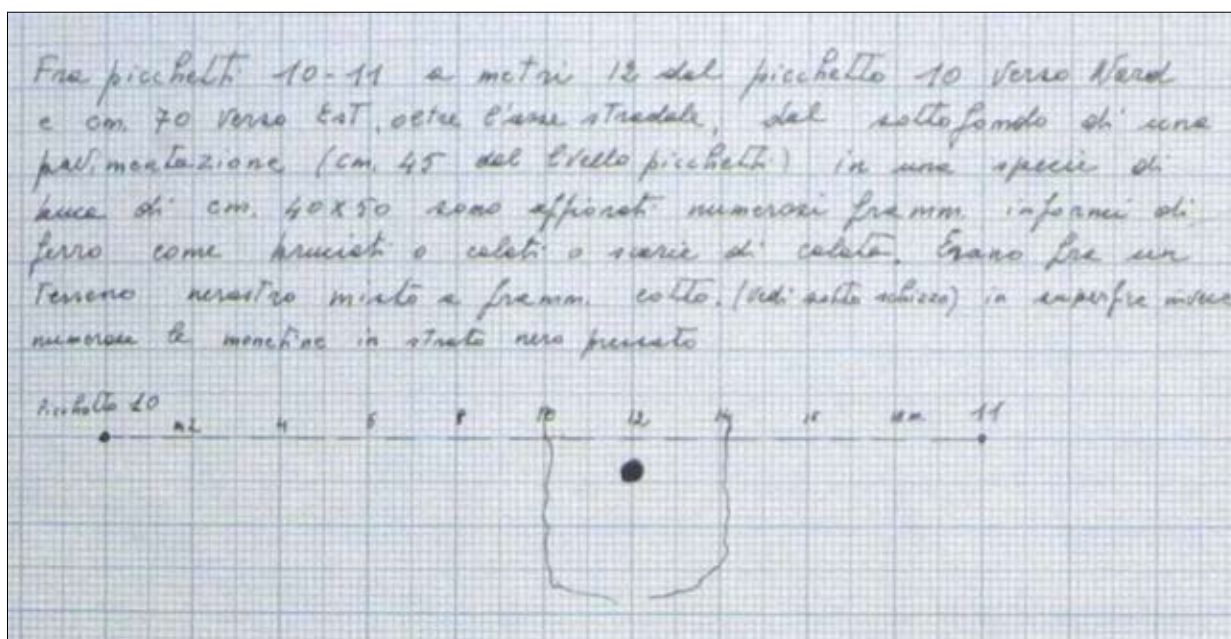 Fra picchetti 10-11 a metri 12 dal picchetto 10 verso Nord
e cm. 70 verso Est, oltre l'asse stradale, dal sottofondo di una
pavimentazione (cm. 45 dal livello picchetti) in una specie di
buca di cm. 40x50 sono affiorati numerosi framm. informi di
ferro come bruciati o colati o scorie di colata. Erano fra un
Terreno nerastro misto a framm. cotto. (vedi sotto schizzo) in superfice invece
numerose le monetine in strato nero pressato
Picchetto 10 m 2 4 6 8 10 12 14 16 18 m 11